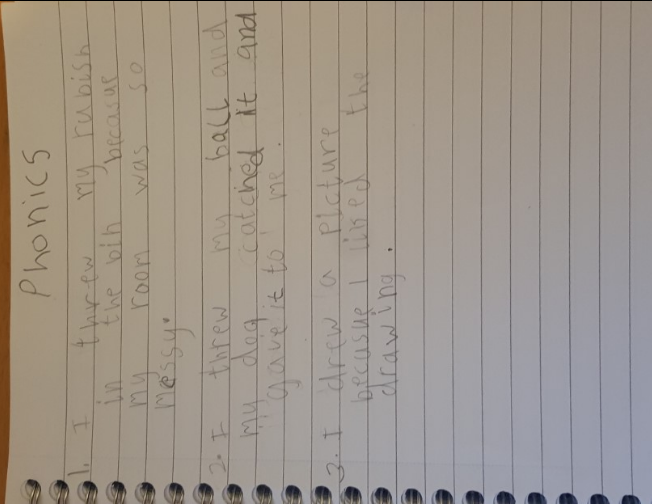 Phonics
1. I threw my rubish
in the bin becasue
my room was so
messy.
2. I threw my ball and
my dog catched it and
gave it to me.
3. I drew a picture
becasue I liked the
drawing.